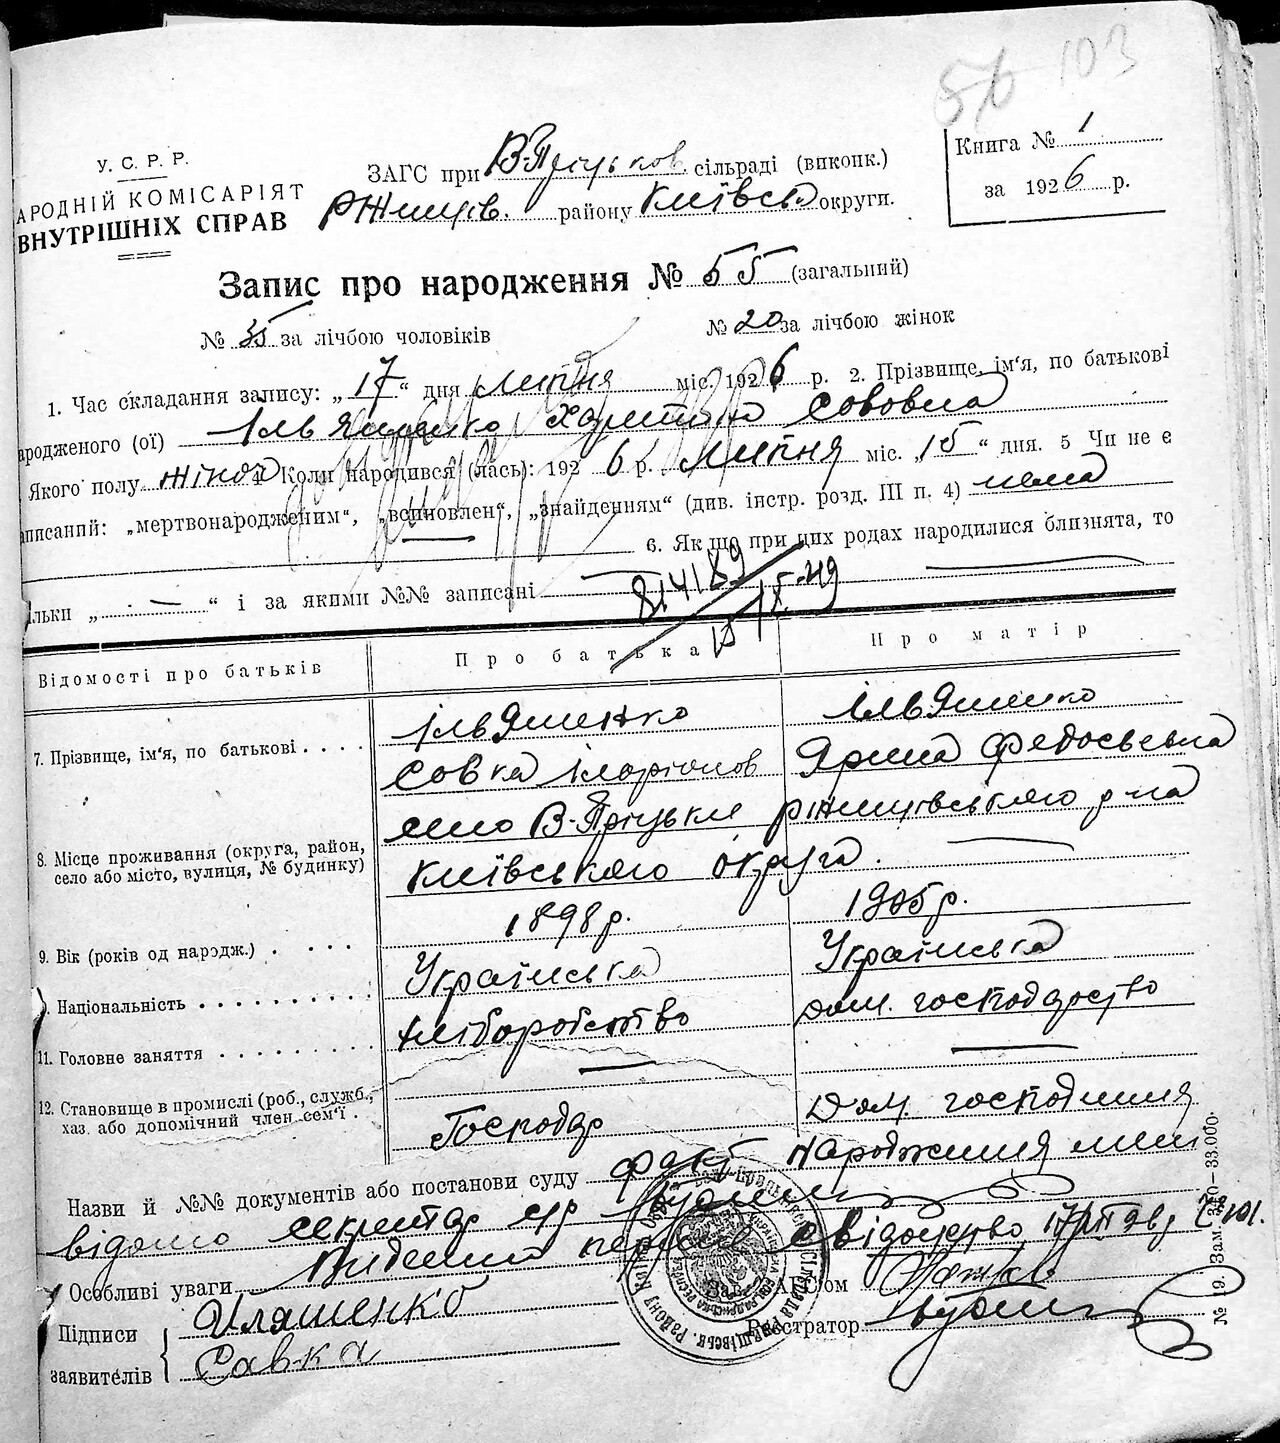 103
У. С. Р. Р.
АРОДНІЙ КОМІСАРІЯТ
ВНУТРІШНІХ СПРАВ
ЗАГС при В-Пріцьков. сільраді (виконк.)
Ржищів. району Київськ округи.
Книга № 1
за 1926 р.
Запис про народження № 55 (загальний)
№ 35 за лічбою чоловіків № 20 за лічбою жінок
1. Час складання запису: „17“ дня Липня міс. 1926 р. 2. Прізвище, ім‘я, по батькові
ародженого (ої) Ільяшенко Савовна
Якого полу жіноч 4 Коли народився (лась): 1926 р. Липня міс. „15“ дня. 5 Чи не є
аписаний: „мертвонародженим“, „всиновлен“, „знайденням“ (див. інстр. розд. III п. 4) нема
6. Як що при цих родах народилися близнята, то
ільки „ — “ і за якими №№ записані
814189
Відомості про батьків Про батька Про матір
7. Прізвище, ім‘я, по батькові . . . . Ільяшенко Ільяшенко
Савка Іларіонов Ярина Федосьевна
8. Місце проживання (округа, район, село або місто, вулиця, № будинку) село В-Пріцьки Ржищівського р-на
Київського округа.
9. Вік (років од народж.) . . . . 1898р. 1905р.
Національність . . . . . . . . . . Українська Українська
11. Головне заняття . . . . . . . . . хліборобство дом. господарство
12. Становище в промислі (роб., служб., хаз. або допомічний член сем‘ї . Господар Дом. господиня
Назви й №№ документів або постанови суду факт народження мені
відомо секретар с/р
Особливі уваги Видений первое свідоцтво
Підписи заявителів Иляшенко
Савка
Зав. ЗАГСом
Реєстратор
№ 19. Зам. 320—33.000.